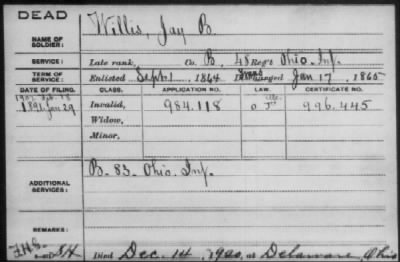 DEAD
NAME OF SOLDIER: Willis, Jay B.
SERVICE: Late rank, Co. B, 48 Reg't Ohio Inf.
TERM OF SERVICE: Enlisted Sept. 1, 1864 Trans Jan 17, 1865
DATE OF FILING. CLASS. APPLICATION NO. LAW. CERTIFICATE NO.
1891 Jan 29 Invalid, 984.118 996.445
Widow,
Minor,
ADDITIONAL SERVICES: B. 83. Ohio. Inf.
REMARKS:
Died Dec. 14, 1920, at Delaware, Ohio